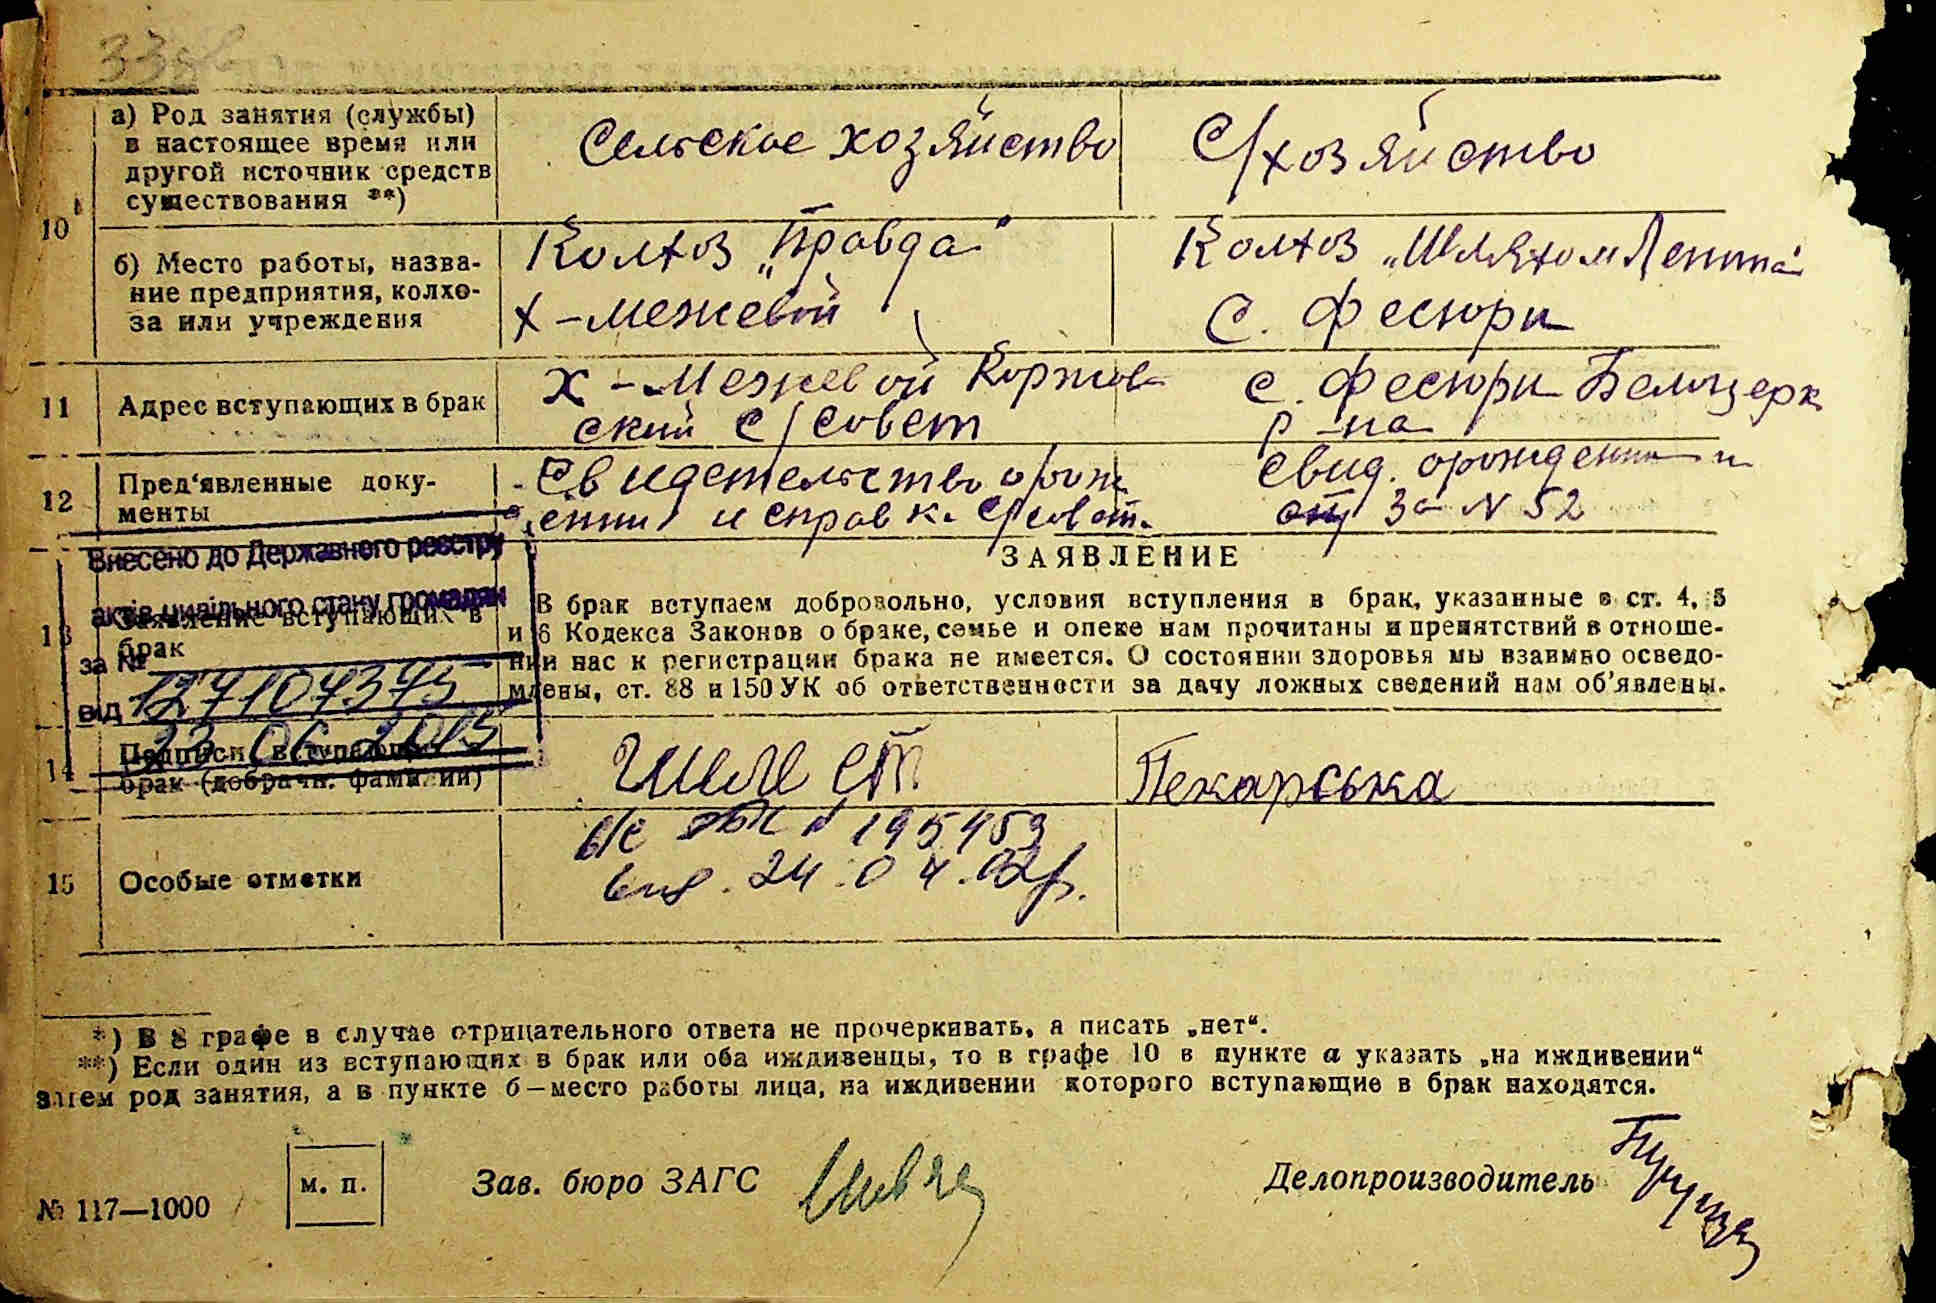 338
10
а) Род занятия (службы)
в настоящее время или
другой источник средств
существования **)
Сельское хозяйство
С/хозяйство
б) Место работы, назва-
ние предприятия, колхо-
за или учреждения
Колхоз „Правда"
х-Межевой
Колхоз „Шляхом Ленина"
с. Фесюри
11
Адрес вступающих в брак
х-Межевой Коржов
ский с/совет
с. Фесюри Белоцерк
р-на
12
Пред'явленные доку-
менты
Свидетельство о рож
ении и справка с/совет.
Свид. о рождении
за N 52
Внесено до Державного реєстру
актів цивільного стану громадян
за №
127107375
від
23 06 2015
13
Заявление вступающих в
брак
ЗАЯВЛЕНИЕ
В брак вступаем добровольно, условия вступления в брак, указанные в ст. 4, 5
и 6 Кодекса Законов о браке, семье и опеке нам прочитаны и препятствий в отноше-
нии нас к регистрации брака не имеется. О состоянии здоровья мы взаимно осведо-
млены, ст. 88 и 150 УК об ответственности за дачу ложных сведений нам об'явлены.
14
Подписи вступающих
брак (добрачн. фамилии)
Пекарська
15
Особые отметки
195459
вид. 24.04.02р.
*) В 8 графе в случае отрицательного ответа не прочеркивать, а писать „нет“.
**) Если один из вступающих в брак или оба иждивенцы, то в графе 10 в пункте а указать „на иждивении“
затем род занятия, а в пункте б—место работы лица, на иждивении которого вступающие в брак находятся.
№ 117—1000
м. п.
Зав. бюро ЗАГС
Делопроизводитель